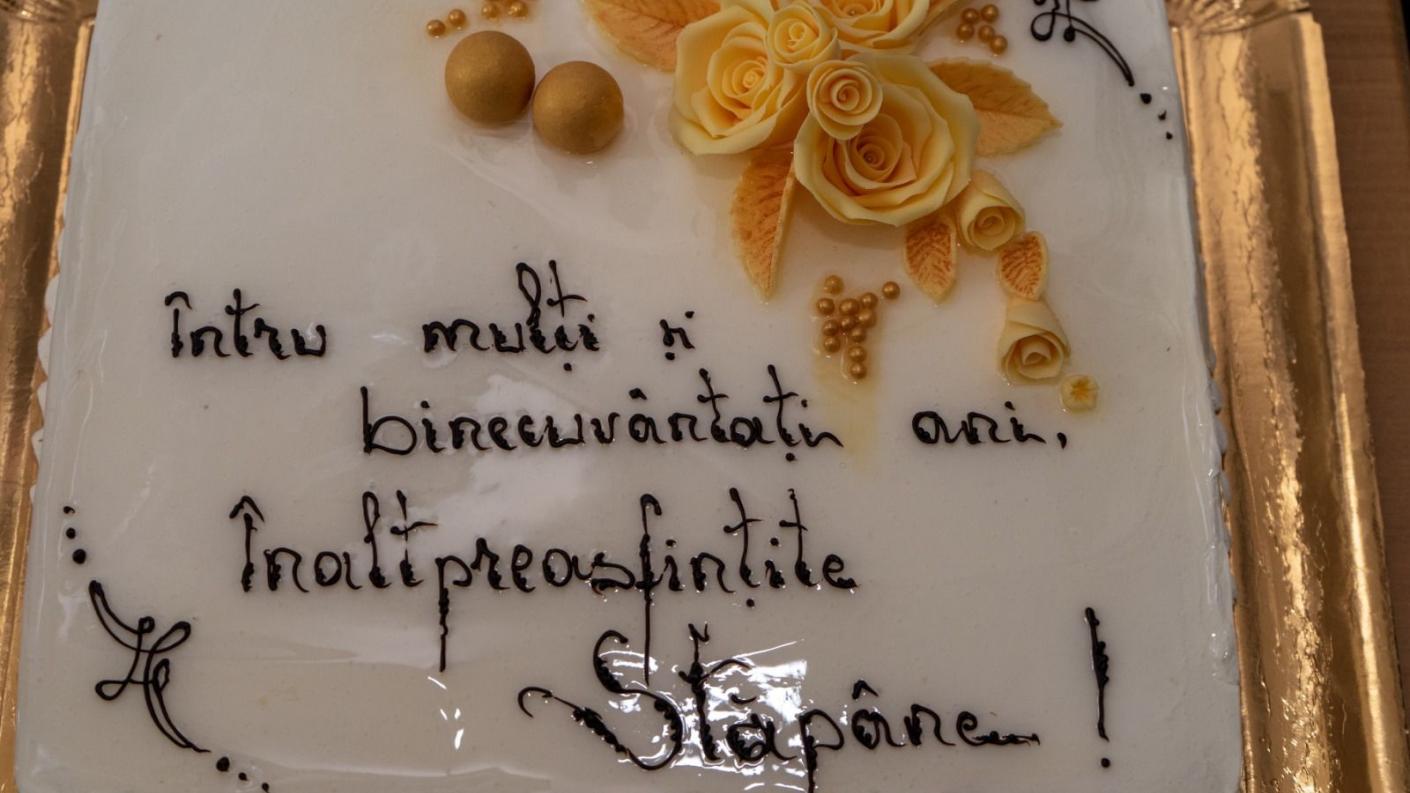 Întru mulți și
binecuvântați ani,
Înaltpreasfințite
Stăpâne!